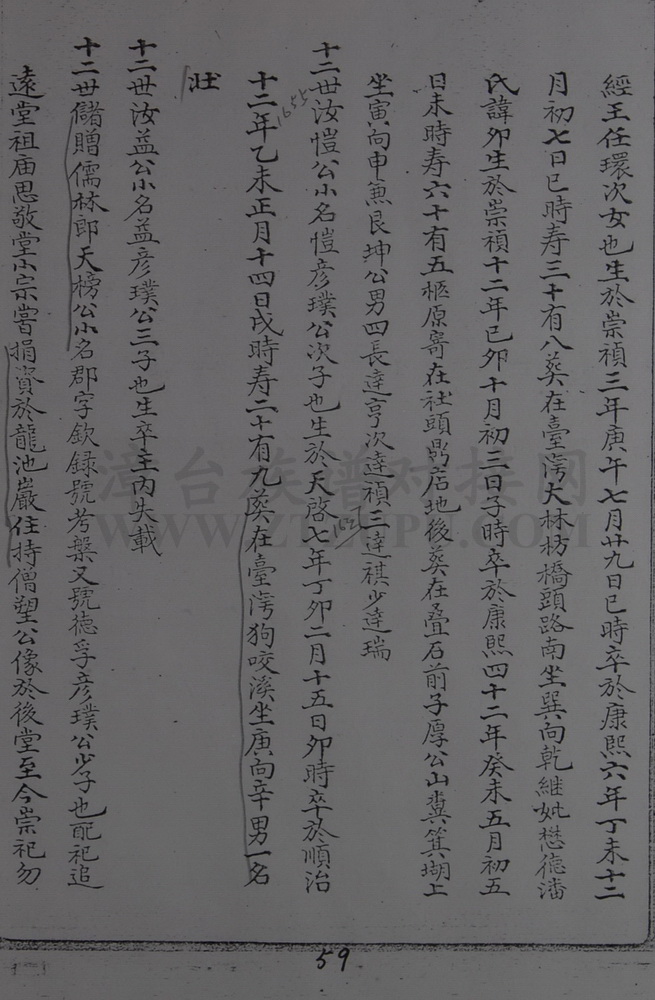 經王任環次女也生於崇禎三年庚午七月廿九日巳時卒於康熙六年丁未十二
月初七日巳時寿三十有八葬在臺湾大林枋橋頭路南坐巽向乾継妣懋德潘
氏諱卯生於崇禎十二年己卯十月初三日子時卒於康熙四十二年癸未五月初五
日未時寿六十有五柩原寄在社頭鼎店地後葬在叠石前子厚公山糞箕湖上
坐寅向申兼艮坤公男四長達亨次達禎三達祺少達瑞
十二世汝愷公小名愷彦璞公次子也生於天啓七年丁卯二月十五日卯時卒於順治
1655
十二年乙未正月十四日戌時寿二十有九葬在臺湾狗咬溪坐庚向辛男一名
壯
十二世汝益公小名益彦璞公三子也生卒主内失載
十二世儲贈儒林郎天榜公小名郡字欽録號考槃又號德孚彦璞公少子也配祀追
遠堂祖庙思敬堂小宗嘗捐資於龍池巖住持僧塑公像於後堂至今崇祀勿
59
漳台族谱对接网
WWW.ZTZUPU.COM